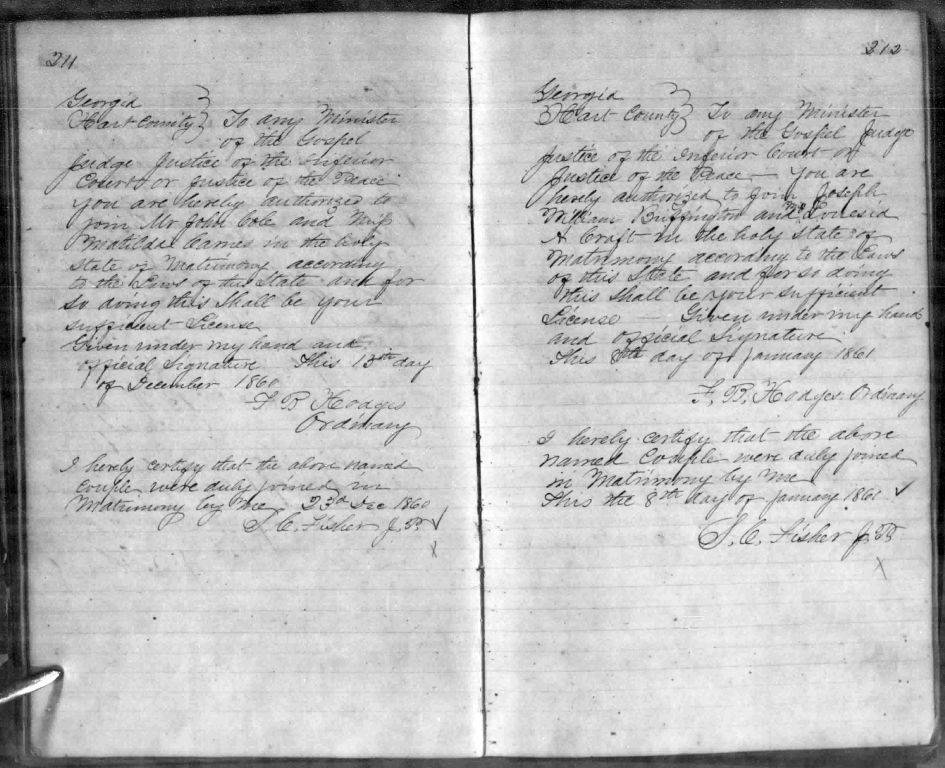 211
Georgia }
Hart County } To any Minister
of the Gospel
Judge Justice of the Inferior
Court or Justice of the Peace
You are hereby authorized to
join Mr John Cole and Miss
Matilda Carnes in the holy
State of Matrimony according
to the Laws of this State and for
so doing this Shall be your
sufficient License
Given under my hand and
official Signature This 13th day
of December 1860
F B Hodges
Ordinary
I hereby certify that the above named
couple were duly joined in
Matrimony by me 23d Dec 1860
S. C. Fisher J. P.
x
212
Georgia }
Hart County } To any Minister
of the Gospel Judge
Justice of the Inferior Court or
Justice of the Peace — You are
hereby authorized to join Joseph
William Buffington and
A Craft in the holy State of
Matrimony according to the Laws
of this State and for so doing
this shall be your sufficient
License — Given under my hand
and Official Signature
This 8th day of January 1861
F. B. Hodges Ordinary
I hereby certify that the above
named Couple were duly joined
in Matrimony by me
This the 8th day of January 1861
S. C. Fisher J. P.
x